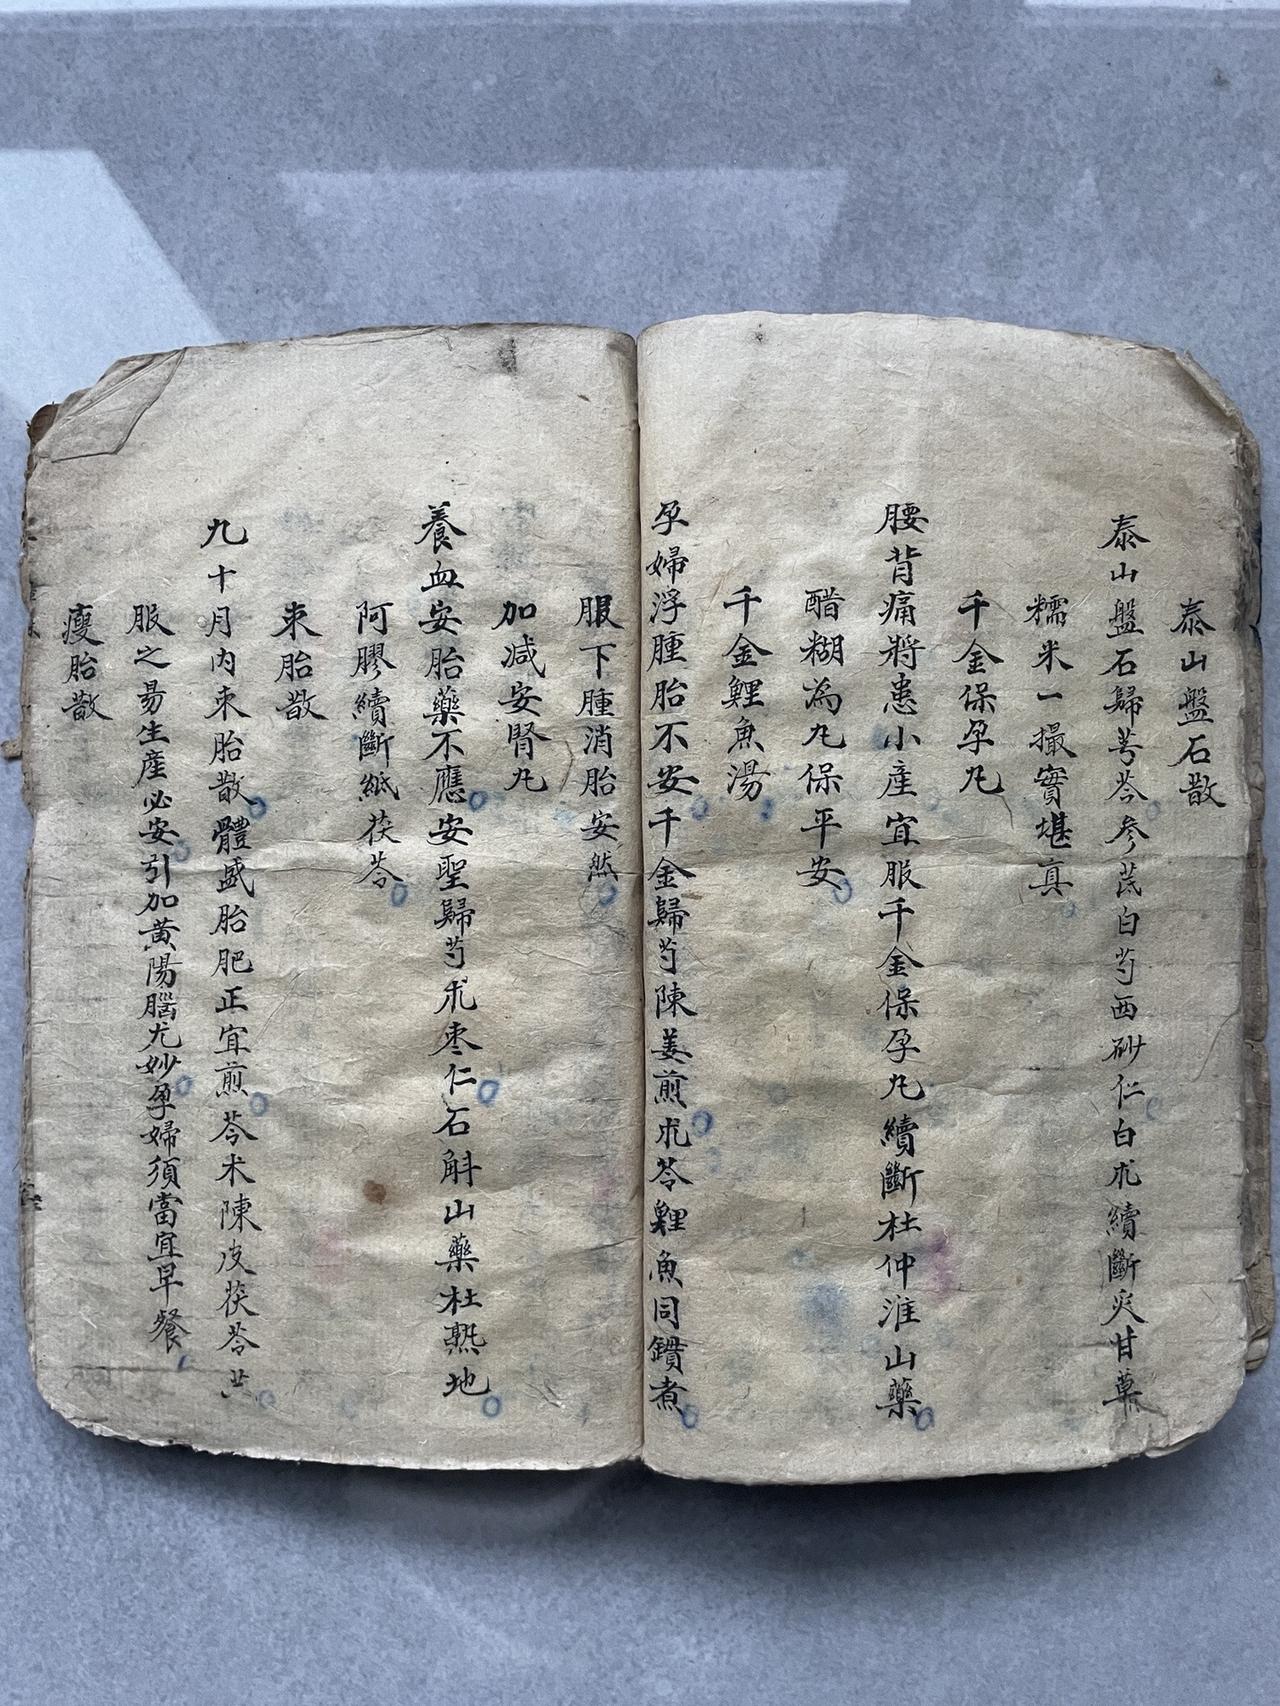 泰山盤石散
泰山盤石歸芎苓参芪白芍西砂仁白朮續斷炙甘草
糯米一撮實堪真
千金保孕丸
腰背痛將患小產宜服千金保孕丸續斷杜仲淮山藥
醋糊為丸保平安
千金鯉魚湯
孕婦浮腫胎不安千金歸芍陳姜煎朮苓鯉魚同鑽煮
服下腫消胎安然
加減安腎丸
養血安胎藥不應安聖歸芍朮枣仁石斛山藥杜熟地
阿膠續斷紙茯苓
束胎散
九十月内束胎散體盛胎肥正宜煎芩术陳皮茯苓共
服之易生產必安引加黄陽腦尤妙孕婦須當宜早餐
瘦胎散